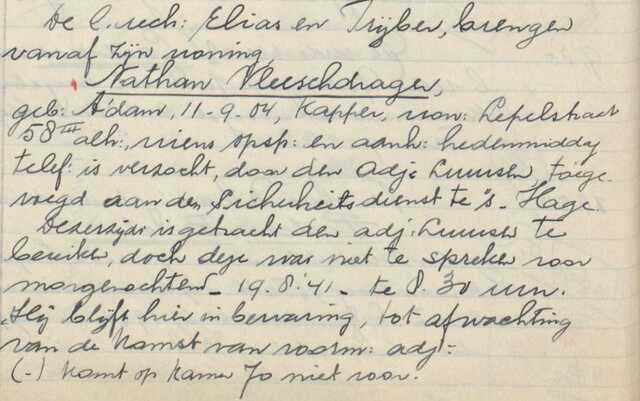 De C. rech: Elias en Trijber, brengen
vanaf zijn woning,
Nathan Vleeschdrager,
geb: A'dam, 11-9.04, Kapper, won: Lepelstraat
58 III alh:, wiens opsp: en aanh: hedenmiddag
telef: is verzocht, door den Adj: Luursen, toege-
voegd aan den Sicherheitsdienst te 's-Hage
Dezerzijds is getracht den adj: Luursen te
bereiken, doch deze was niet te spreken voor
morgenochtend - 19.8.'41 - te 8.30 uur.
Hij blijft hier in bewaring, tot afwachting
van de komst van voorm: adj:-
(-) Komt op Kamer 70 niet voor.